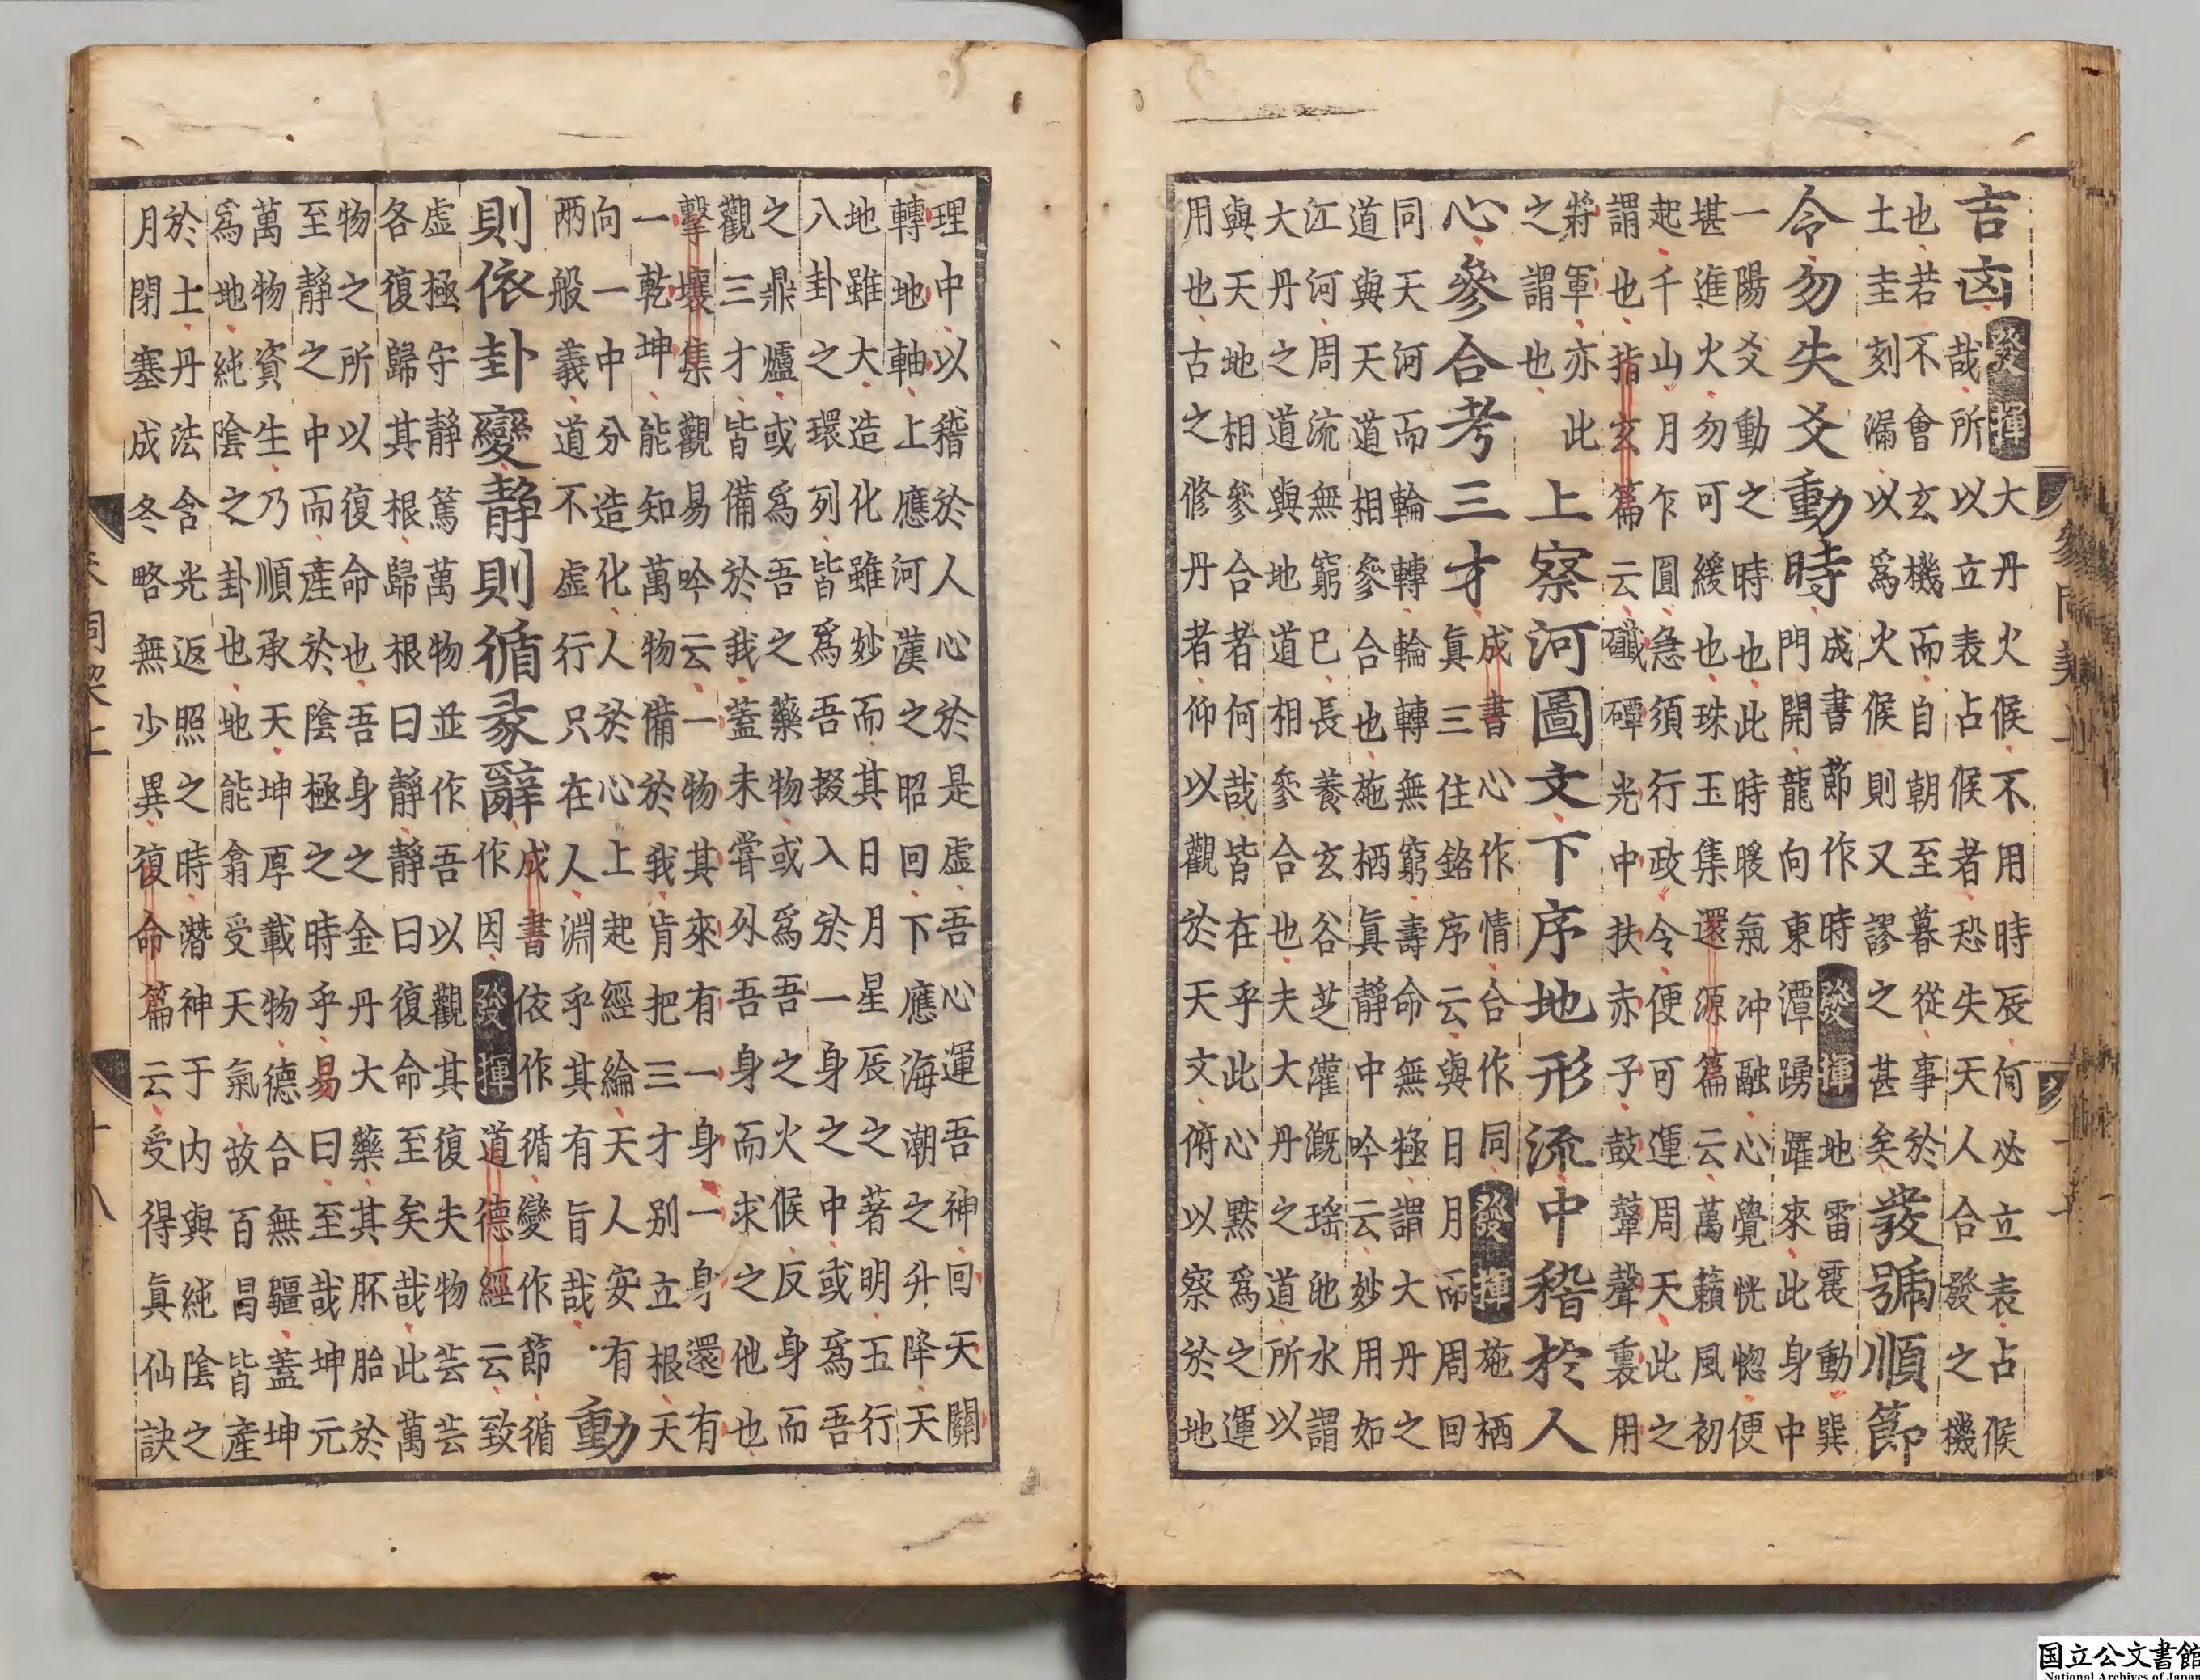 吉凶發揮
大丹火候不用時辰何必立表占候
哉所以立表占候者恐失天人合發之機
也若不會玄機而自朝至暮從事於
土圭刻漏以爲火候則又謬之甚矣
發號順節
令勿失爻動時
成書節作時發揮地雷震動巽
門開龍向東潭踴躍來此身中
一陽爻動之時也此時暖氣冲融心覺恍惚便
堪進火勿可緩也珠玉集還源篇云萬籟風初
起千山月乍圓急須行政令便可運周天此之
謂也指玄篇云䃸磹光中扶赤子鼓鼙聲裏用
將軍亦此
之謂也
上察河圖文下序地形流中稽於人
心參合考三才
成書心作情合作同發揮施栖
眞三住銘序云與日月而周回
同天河而輪轉輪轉無窮壽命無極謂大丹之
道與天道相參合也施栖眞靜中吟云妙用如
江河周流無窮已長養玄谷芝灌溉瑤池水謂
大丹之道與地道相參合也夫大丹之道所以
與天地相參合者何哉皆在乎此心默爲之運
用也古之修丹者仰以觀於天文俯以察於地
理中以稽於人心於是虛吾心運吾神回天關
轉地軸上應河漢之昭回下應海潮之升降天
地雖大造化雖妙而其日月星辰之著明五行
八卦之環列皆爲吾掇入於一身之中或爲吾
之鼎爐或爲吾之藥物或爲吾之火候反身而
觀三才皆備於我蓋未甞外吾身而求之他也
擊壤集觀易吟云一物其來有一身一身還有
一乾坤能知萬物備於我肯把三才別立根天
向一中分造化人於心上起經綸天人安有
兩般義道不虛行只在人淵乎其有旨哉
動
則依卦變靜則循彖辭
成書依作循變作節循
作因發揮道德經云致
虛極守靜篤萬物並作吾以觀其復夫物芸芸
各復歸其根歸根曰靜靜曰復命至矣哉此萬
物之所以復命也吾身之金丹大藥其胚胎於
至靜之中而產於陰極之時乎易曰至哉坤元
萬物資生乃順承天坤厚載物德合無疆蓋坤
爲地純陰之卦也地能翕受天氣故百昌皆產
於土丹法含光返照之時潛神于内與純陰之
月閉塞成冬略無少異復命篇云受得眞仙訣
国立公文書館
National Archives of Japan